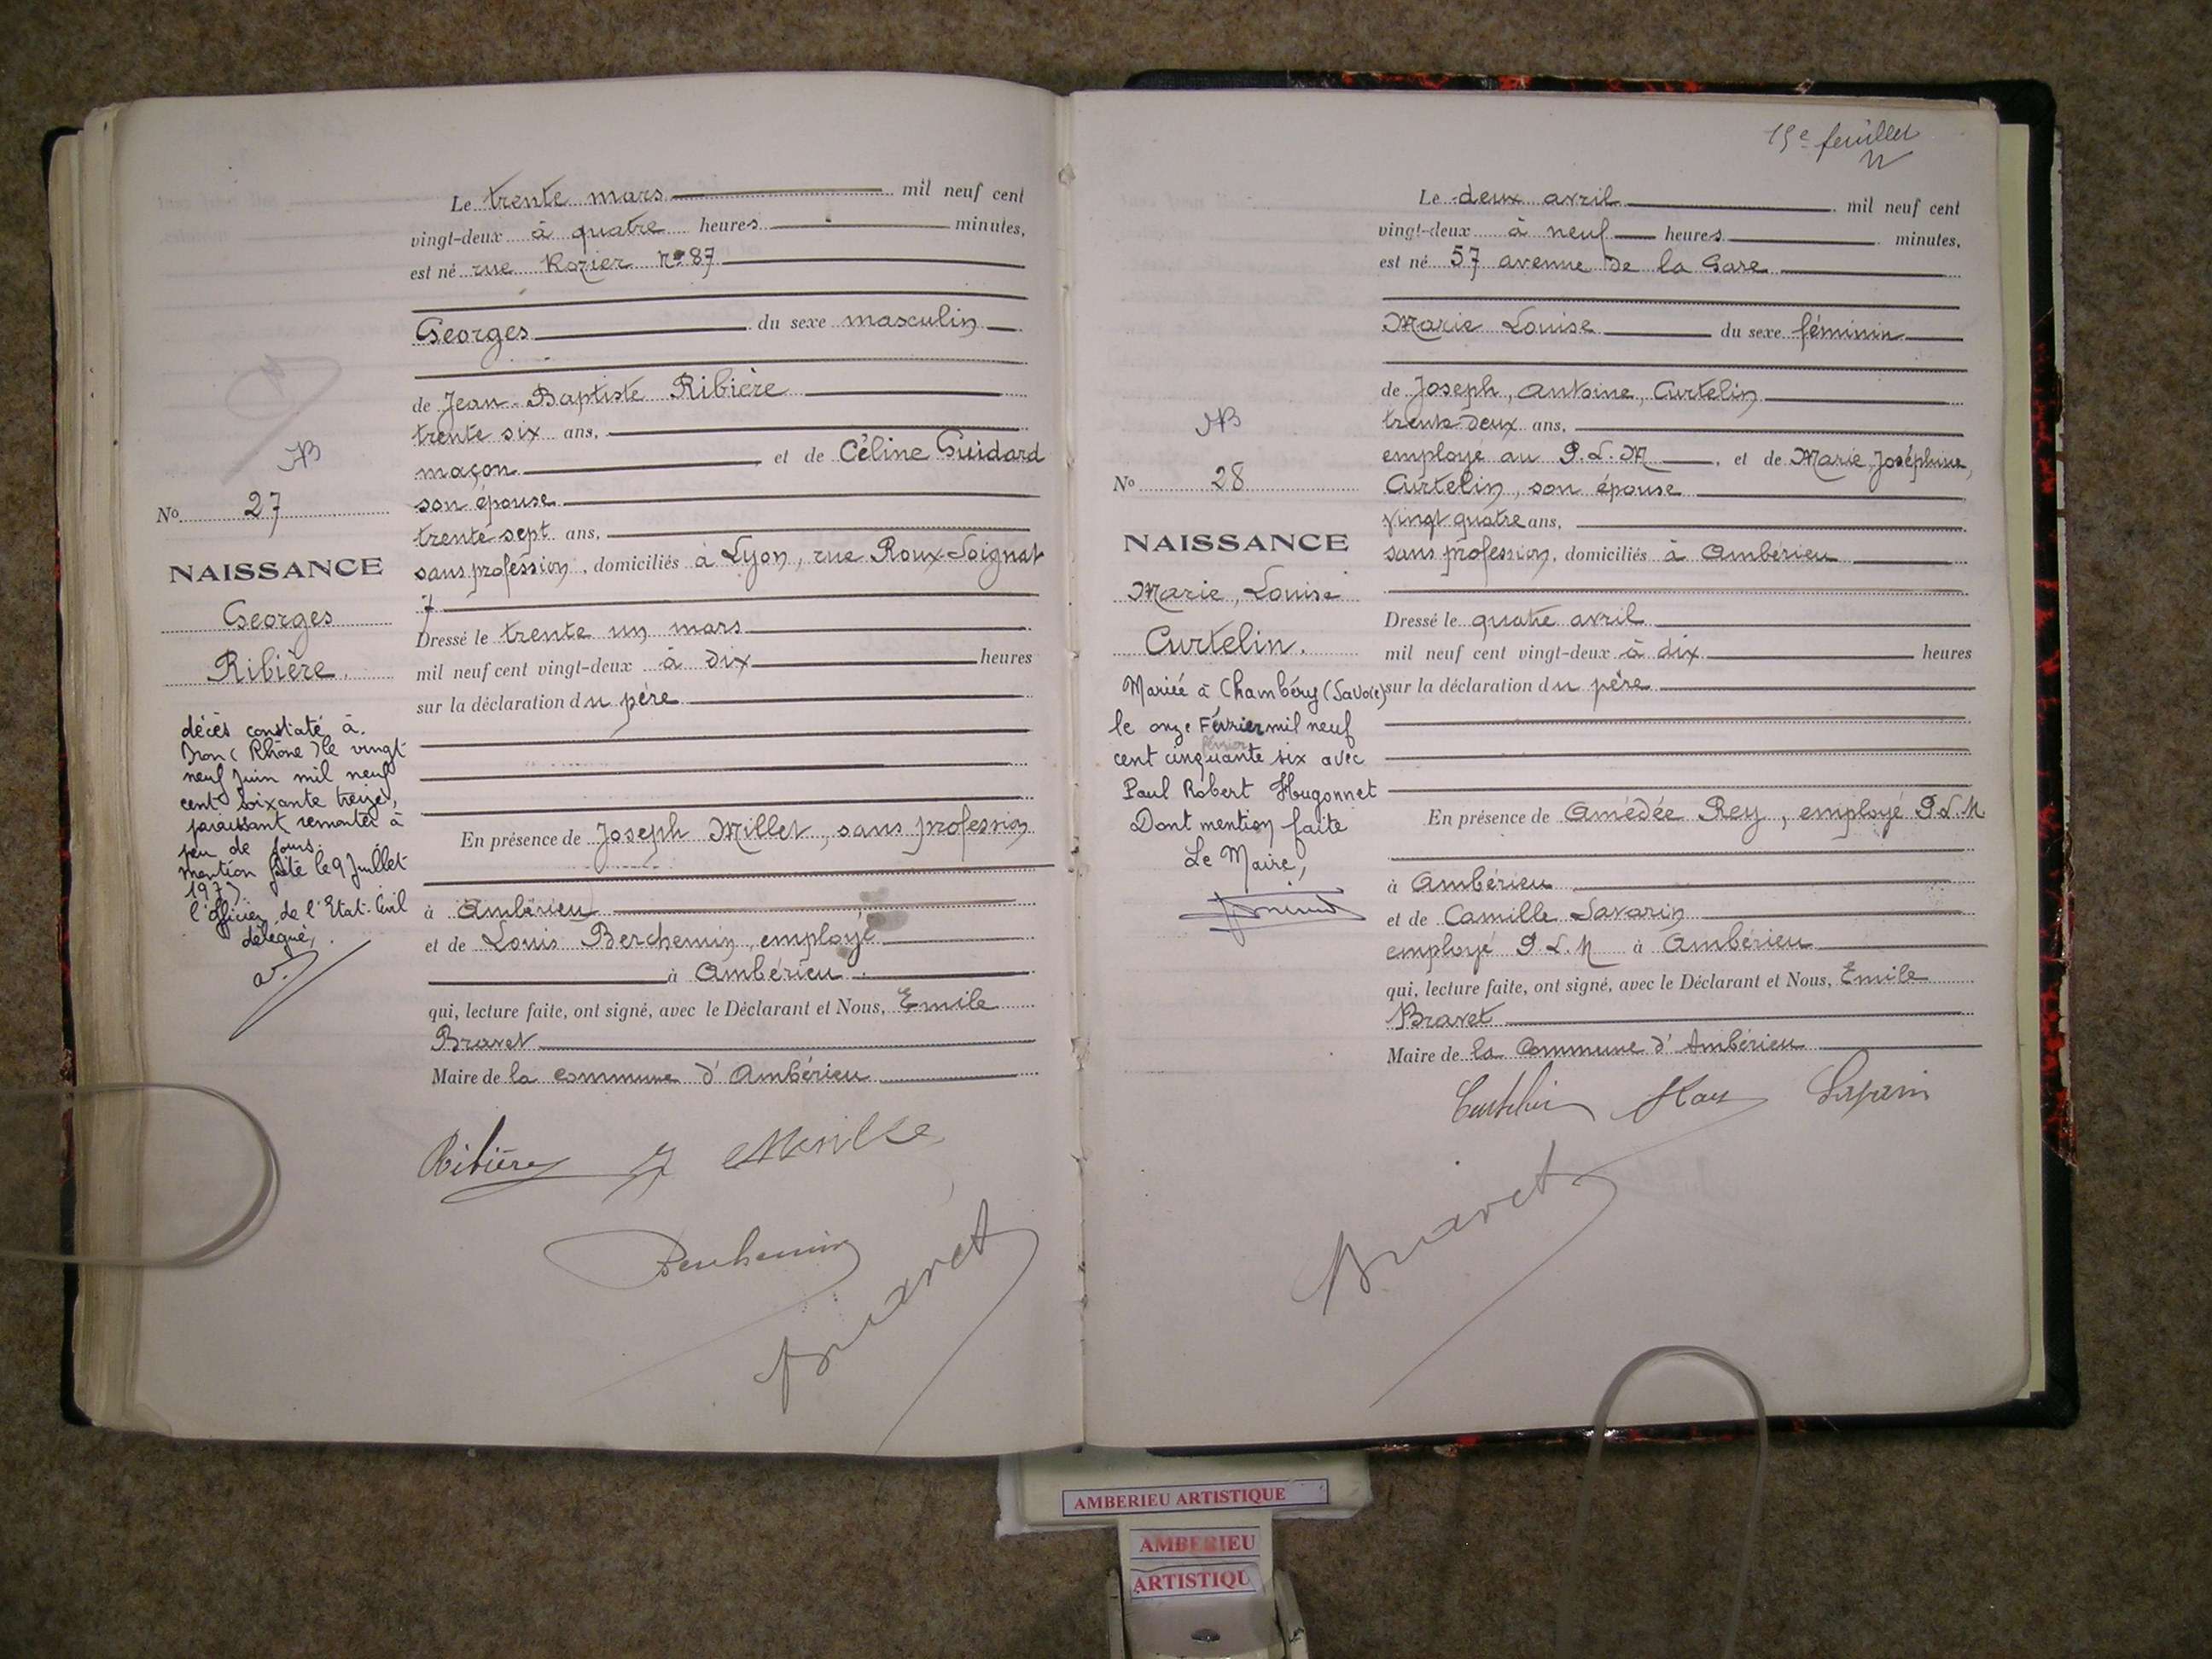 Le trente mars mil neuf cent
vingt-deux à quatre heures minutes,
est né rue Rozier n° 87
Georges du sexe masculin
de Jean-Baptiste Ribière
trente six ans,
maçon et de Céline Guidard
son épouse
trente sept ans,
sans profession, domiciliés à Lyon, rue Roux-Soignat
7
Dressé le trente un mars
mil neuf cent vingt-deux à dix heures
sur la déclaration du père
En présence de Joseph Millet, sans profession
à Ambérieu
et de Louis Berchemin, employé
à Ambérieu
qui, lecture faite, ont signé, avec le Déclarant et Nous, Emile
Bravet
Maire de la commune d'Ambérieu
Ribière
Bravet
No 27
NAISSANCE
Georges
Ribière.
décès constaté à
Bron (Rhône) le vingt
neuf Juin mil neuf
cent soixante treize,
paraissant remonter à
peu de jours.
mention faite le 9 Juillet
1973
l'officier de l'Etat-Civil
délégué,
15e feuillet
Le deux avril mil neuf cent
vingt-deux à neuf heures minutes,
est né 57 avenue de la Gare
Marie Louise du sexe féminin
de Joseph, Antoine, Curtelin
trente-deux ans,
employé au P.L.M, et de Marie, Joséphine,
Curtelin, son épouse
vingt quatre ans,
sans profession, domiciliés à Ambérieu
Dressé le quatre avril
mil neuf cent vingt-deux à dix heures
sur la déclaration du père
En présence de Amédée Rey, employé P.L.M
à Ambérieu
et de Camille Savarin
employé P.L.M à Ambérieu
qui, lecture faite, ont signé, avec le Déclarant et Nous, Emile
Bravet
Maire de la Commune d'Ambérieu
Curtelin
Bravet
No 28
NAISSANCE
Marie, Louise
Curtelin.
Mariée à Chambéry (Savoie)
le onze Février mil neuf
février
cent cinquante six avec
Paul Robert Hugonnet
Dont mention faite
Le Maire,
AMBERIEU ARTISTIQUE
AMBERIEU
ARTISTIQU